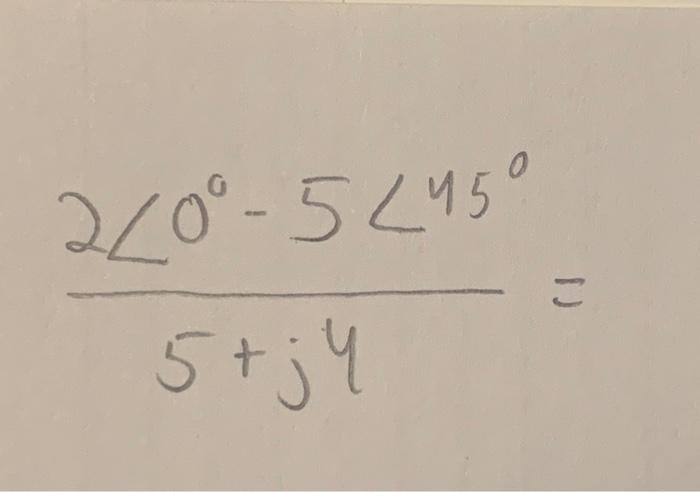 2∠0° - 5∠45°
5 + j4
=